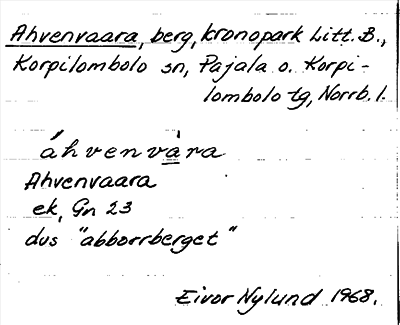 Ahvenvaara, berg, kronopark Litt. B.,
Korpilombolo sn, Pajala o. Korpi-
lombolo tg, Norrb. l.
áhvenvàra
Ahvenvaara
ek, Gn 23
dvs "abborrberget"
Eivor Nylund 1968.